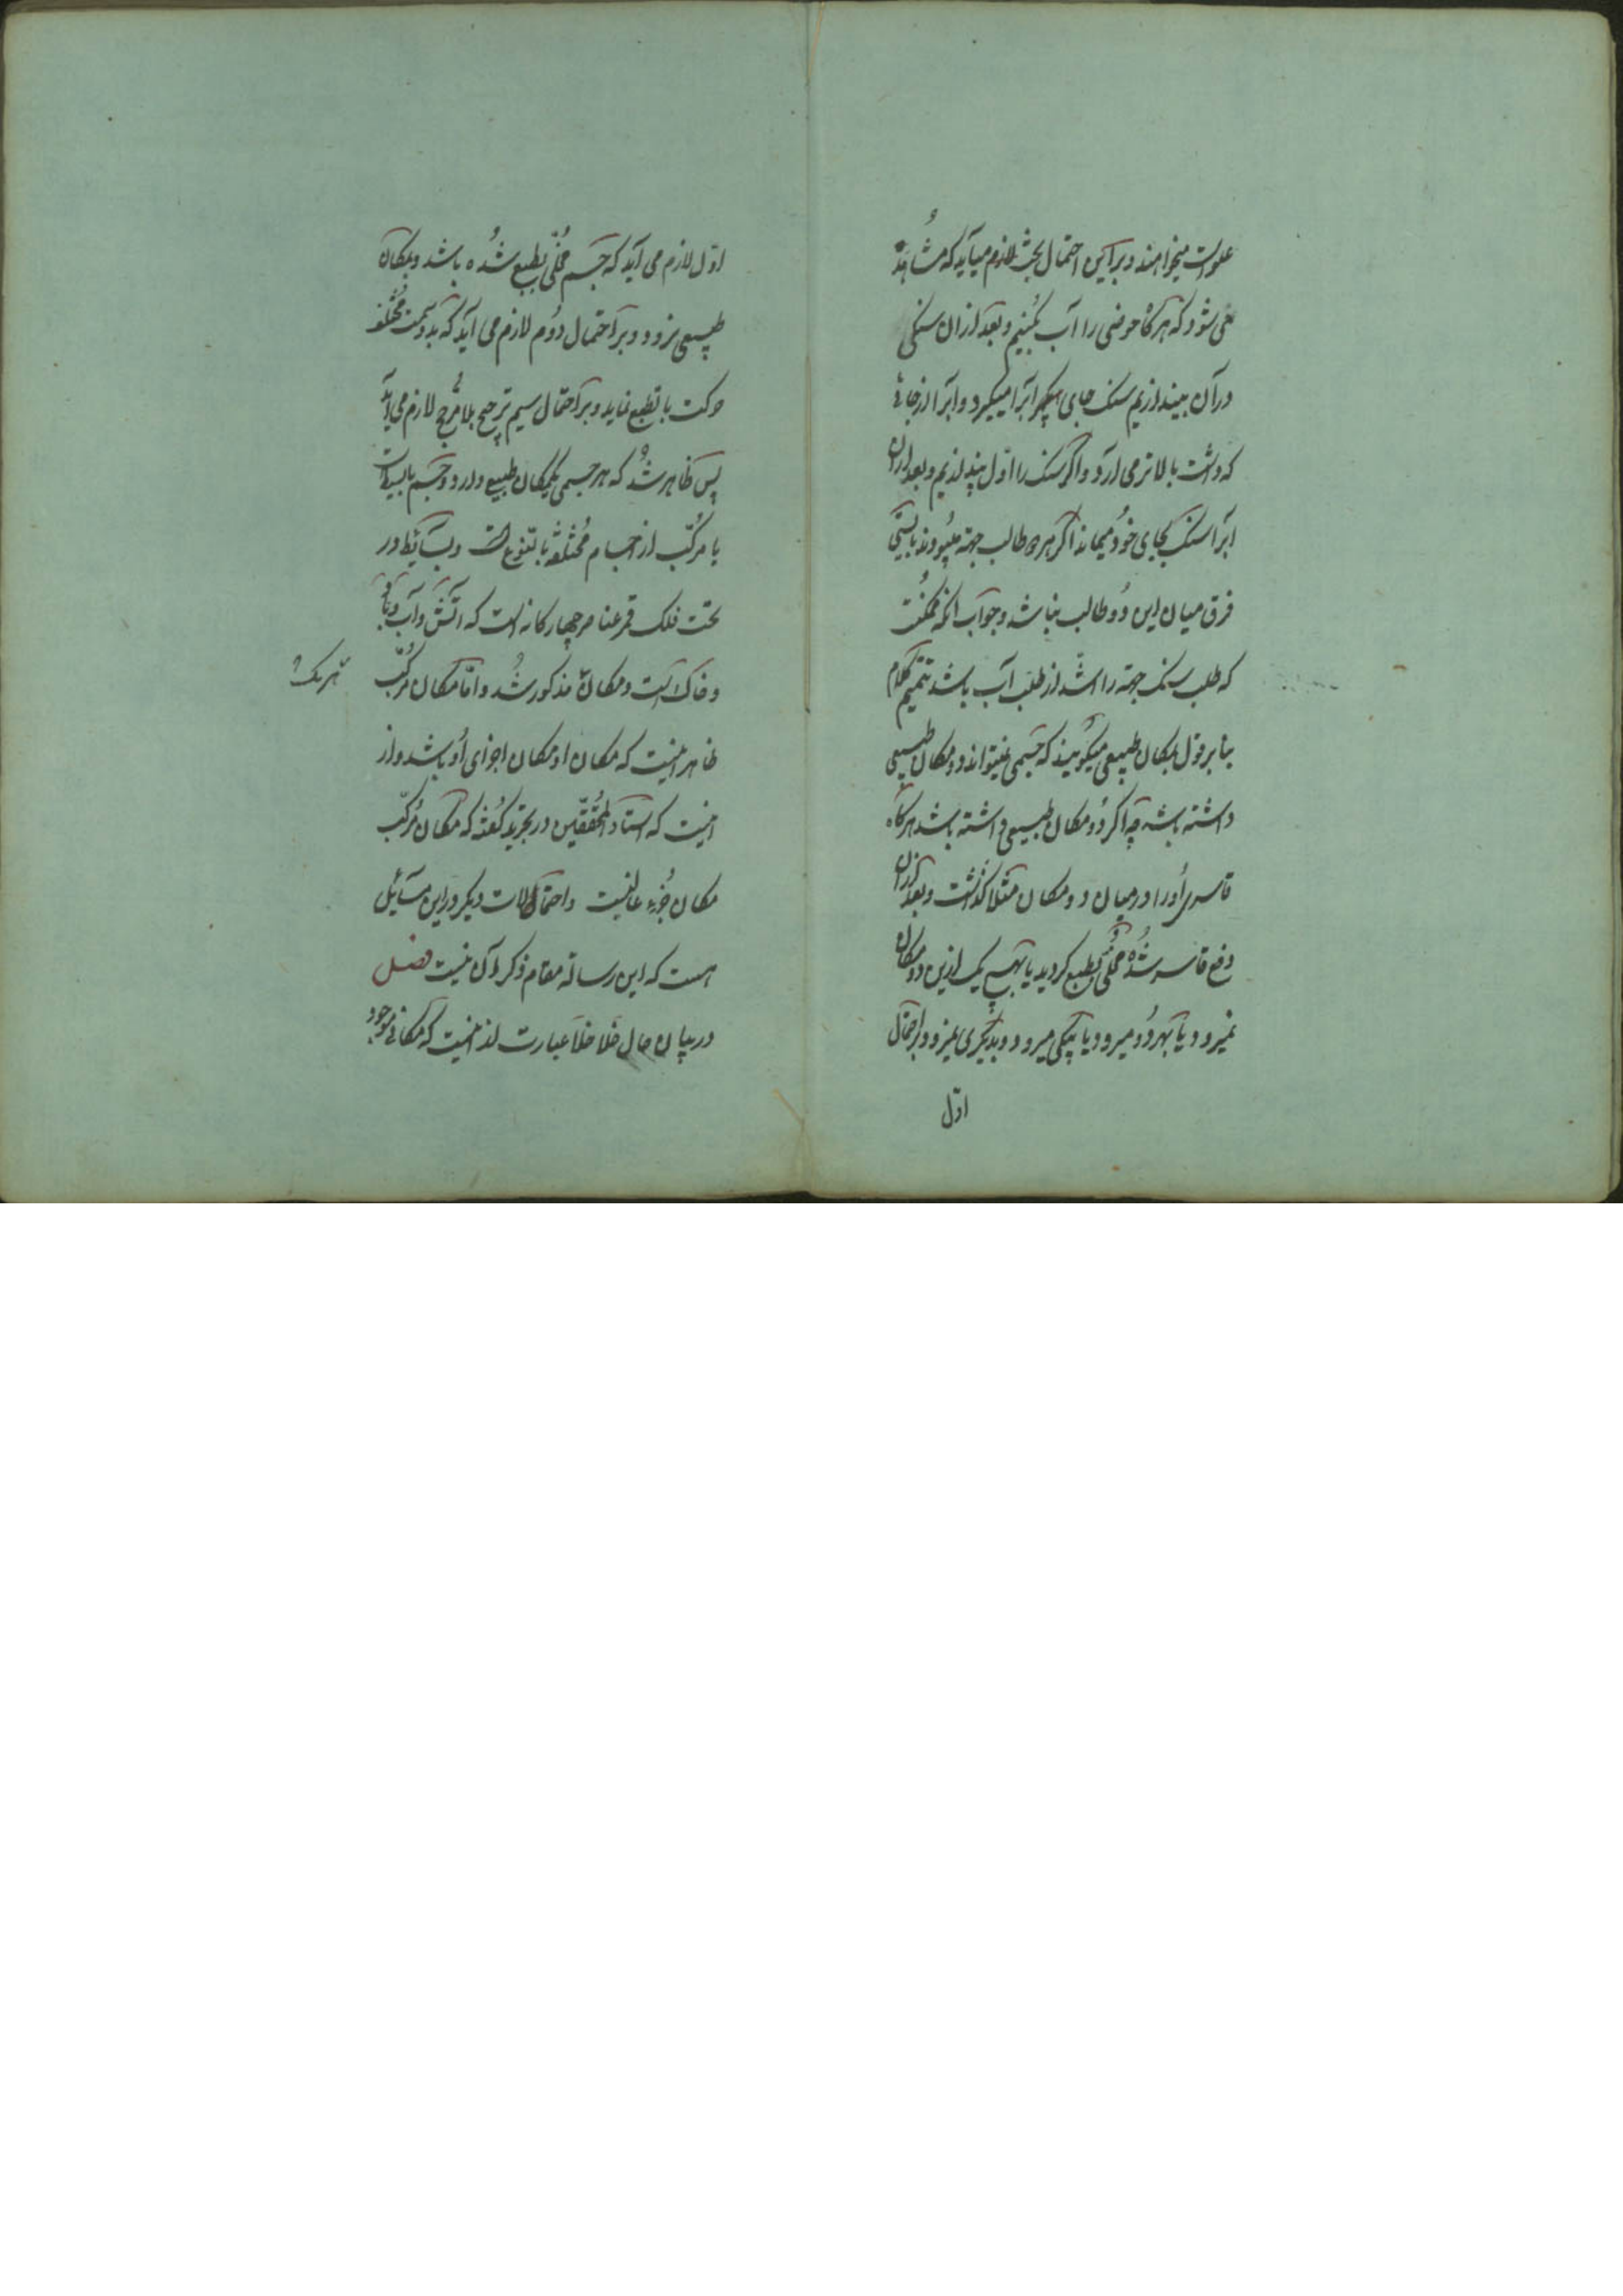 علو است میخواهند و بر این احتمال بحث لازم میآید که مشاهد
می شود که هرگاه حوضی را آب کنیم و بعد از ان سنکی
در آن بیندازیم سنک جای ابرا میکیرد و ابرا از جائی
که داشت بالاتر می آرد و اگر سنک را اول بیندازیم و بعد از ان
ابرا سنک بجای خود میماند اگر هر دو طالب جهة میبودند بایستی
فرق میان این دو طالب نباشد و جواب انکه ممکنست
که طلب سنک جهة را اشد از طلب آب باشد تتمیم کلام
بنا بر قول بمکان طبیعی میکویند که جسمی نمیتواند دو مکان طبیعی
داشته باشد چه اکر دو مکان طبیعی داشته باشد هرکاه
قاسری او را در میان دو مکان مثلا کذاشت و بعد از ان
دفع قاسر شده مخلی بطبع کردید یا بهیچ یک ازین دو مکان
نمیرود یا بهر دو میرود یا بیکی میرود و بدیکری نمیرود بر احتمال
اول
اول لازم می آید که جسم مخلی بطبع شده باشد و بمکان
طبیعی نرود و بر احتمال دوم لازم می آید که بدو سمت مختلف
حرکت بالطبع نماید و بر احتمال سیم ترجیح بلا مرجح لازم می آید
پس ظاهر شد که هر جسمی یکمکان طبیعی دارد و جسم یا بسیط است
یا مرکب از اجسام مختلفه بالنوع است و بسائط در
تحت فلک قمر عناصر چهار کانه است که اتش و آب و باد
و خاک است و مکان مذکور شد و اما مکان مرکب
هر یک
ظاهر اینست که مکان او مکان اجزای او باشد و از
اینست که استاد المحققین در تجرید کفته که مکان مرکب
مکان جزء غالبست و احتمالات دیکر در این مسائل
هست که این رساله مقام ذکر آن نیست فصل
در بیان حال خلا خلا عبارت از اینست که مکانی موجود